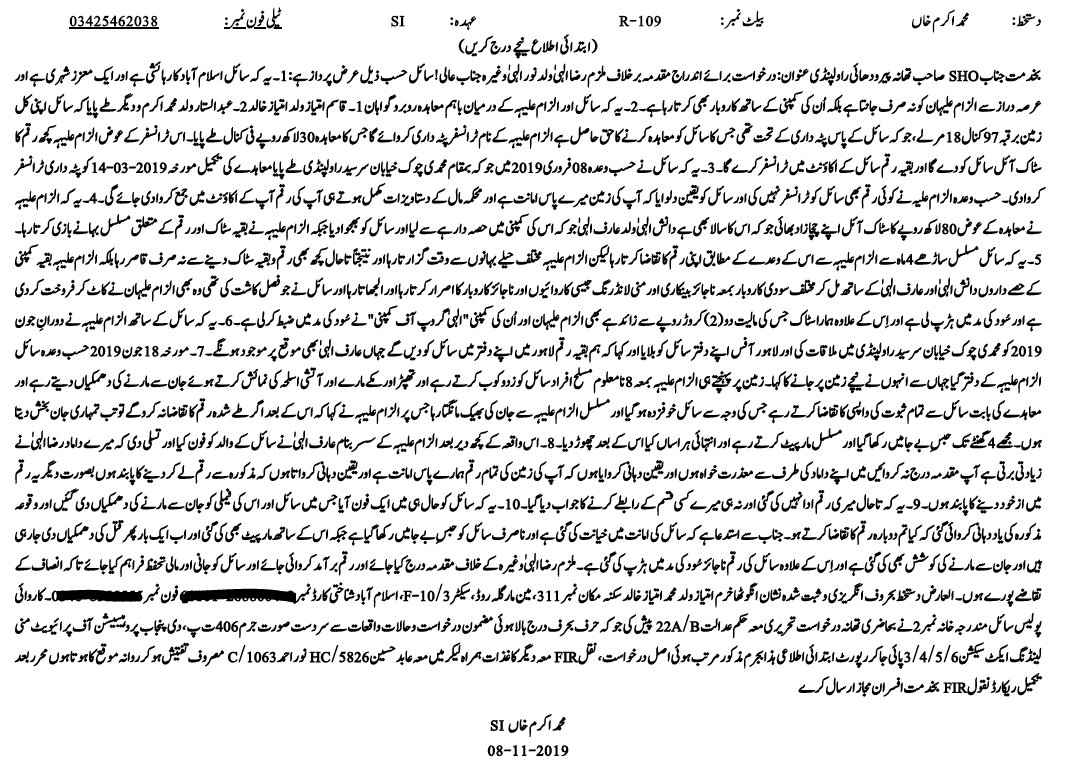 دستخط: محمد اکرم خاں بیلٹ نمبر: R-109 عہدہ: SI ٹیلی فون نمبر: 03425462038
(ابتدائی اطلاع نیچے درج کریں)
بخدمت جناب SHO صاحب تھانہ پیرودھائی راولپنڈی عنوان: درخواست برائے اندراج مقدمہ برخلاف ملزم رضا الٰہی ولد نور الٰہی وغیرہ جناب عالی! سائل حسب ذیل عرض پرداز ہے: 1۔ یہ کہ سائل اسلام آباد کا رہائشی ہے اور ایک معزز شہری ہے اور
عرصہ دراز سے الزام علیہان کو نہ صرف جانتا ہے بلکہ اُن کی کمپنی کے ساتھ کاروبار بھی کرتا رہا ہے۔ 2۔ یہ کہ سائل اور الزام علیہ کے درمیان باہم معاہدہ روبرو گواہان 1۔ قاسم امتیاز ولد امتیاز خالد 2۔ عبدالستار ولد محمد اکرم و دیگر طے پایا کہ سائل اپنی کل
زمین برقبہ 97 کنال 18 مرلے، جو کہ سائل کے پاس پٹہ داری کے تحت تھی جس کا سائل کو معاہدہ کرنے کا حق حاصل ہے الزام علیہ کے نام ٹرانسفر پٹہ داری کروائے گا جس کا معاہدہ 30 لاکھ روپے فی کنال طے پایا۔ اس ٹرانسفر کے عوض الزام علیہ کچھ رقم کا
سٹاک آئل سائل کو دے گا اور بقیہ رقم سائل کے اکاؤنٹ میں ٹرانسفر کرے گا۔ 3۔ یہ کہ سائل نے حسب وعدہ 08 فروری 2019 میں جو کہ بمقام محمدی چوک خیابان سر سید راولپنڈی طے پایا معاہدے کی تکمیل مورخہ 2019-03-14 کو پٹہ داری ٹرانسفر
کروا دی۔ حسب وعدہ الزام علیہ نے کوئی رقم بھی سائل کو ٹرانسفر نہیں کی اور سائل کو یقین دلوایا کہ آپ کی زمین میرے پاس امانت ہے اور محکمہ مال کے دستاویزات مکمل ہوتے ہی آپ کی رقم آپ کے اکاؤنٹ میں جمع کروا دی جائے گی۔ 4۔ یہ کہ الزام علیہ
نے معاہدہ کے عوض 80 لاکھ روپے کا سٹاک آئل اپنے چچا زاد بھائی جو کہ اس کا سالا بھی ہے دانش الٰہی ولد عارف الٰہی جو کہ اس کی کمپنی میں حصہ دار ہے سے لیا اور سائل کو بھجوا دیا جبکہ الزام علیہ نے بقیہ سٹاک اور رقم کے متعلق مسلسل بہانے بازی کرتا رہا۔
5۔ یہ کہ سائل مسلسل ساڑھے 4 ماہ سے الزام علیہ سے اس کے وعدے کے مطابق اپنی رقم کا تقاضا کرتا رہا لیکن الزام علیہ مختلف حیلے بہانوں سے وقت گزارتا رہا اور نتیجتاً تاحال کچھ بھی رقم و بقیہ سٹاک دینے سے نہ صرف قاصر رہا بلکہ الزام علیہ بقیہ کمپنی
کے حصے داروں دانش الٰہی اور عارف الٰہی کے ساتھ مل کر مختلف سودی کاروبار بمعہ ناجائز بینکاری اور منی لانڈرنگ جیسی کاروائیوں اور ناجائز کاروبار کا اصرار کرتا رہا اور الجھاتا رہا اور سائل نے جو فصل کاشت کی تھی وہ بھی الزام علیہان نے کاٹ کر فروخت کر دی
ہے اور سود کی مد میں ہڑپ لی ہے اور اِس کے علاوہ ہمارا سٹاک جس کی مالیت دو (2) کروڑ روپے سے زائد ہے بھی الزام علیہان اور اُن کی کمپنی "الٰہی گروپ آف کمپنی" نے سُود کی مد میں ضبط کر لی ہے۔ 6۔ یہ کہ سائل کے ساتھ الزام علیہ نے دورانِ جون
2019 کو محمدی چوک خیابان سر سید راولپنڈی میں ملاقات کی اور لاہور آفس اپنے دفتر سائل کو بلایا اور کہا کہ ہم بقیہ رقم لاہور میں اپنے دفتر میں سائل کو دیں گے جہاں عارف الٰہی بھی موقع پر موجود ہونگے۔ 7۔ مورخہ 18 جون 2019 حسب وعدہ سائل
الزام علیہ کے دفتر گیا جہاں سے انہوں نے نیچے زمین پر جانے کا کہا۔ زمین پر پہنچتے ہی الزام علیہ بمعہ 8 نامعلوم مسلح افراد سائل کو زدو کوب کرتے رہے اور تھپڑ اور مکے مارے اور آتشی اسلحہ کی نمائش کرتے ہوئے جان سے مارنے کی دھمکیاں دیتے رہے اور
معاہدے کی بابت سائل سے تمام ثبوت کی واپسی کا تقاضا کرتے رہے جس کی وجہ سے سائل خوفزدہ ہو گیا اور مسلسل الزام علیہ سے جان کی بھیک مانگتا رہا جس پر الزام علیہ نے کہا کہ اس کے بعد اگر طے شدہ رقم کا تقاضا نہ کرو گے تو تب تمہاری جان بخش دیتا
ہوں۔ مجھے 4 گھنٹے تک حبسِ بے جا میں رکھا گیا اور مسلسل مار پیٹ کرتے رہے اور انتہائی ہراساں کیا اس کے بعد چھوڑ دیا۔ 8۔ اس واقعہ کے کچھ دیر بعد الزام علیہ کے سسر بنام عارف الٰہی نے سائل کے والد کو فون کیا اور تسلی دی کہ میرے داماد رضا الٰہی نے
زیادتی برتی ہے آپ مقدمہ درج نہ کروائیں میں اپنے داماد کی طرف سے معذرت خواہ ہوں اور یقین دہانی کرواتا ہوں کہ آپ کی زمین کی تمام رقم ہمارے پاس امانت ہے اور یقین دہانی کرواتا ہوں کہ مذکورہ سے رقم لے کر دینے کا پابند ہوں بصورت دیگر یہ رقم
میں از خود دینے کا پابند ہوں۔ 9۔ یہ کہ تاحال میری رقم ادا نہیں کی گئی اور نہ ہی میرے کسی قسم کے رابطے کرنے کا جواب دیا گیا۔ 10۔ یہ کہ سائل کو حال ہی میں ایک فون آیا جس میں سائل اور اس کی فیملی کو جان سے مارنے کی دھمکیاں دی گئیں اور وقوعہ
مذکورہ کی یاد دہانی کروائی گئی کہ کیا تم دوبارہ رقم کا تقاضا کرتے ہو۔ جناب سے استدعا ہے کہ سائل کی امانت میں خیانت کی گئی ہے اور نا صرف سائل کو حبسِ بے جا میں رکھا گیا ہے جبکہ اس کے ساتھ مار پیٹ بھی کی گئی اور اب ایک بار پھر قتل کی دھمکیاں دی جا رہی
ہیں اور جان سے مارنے کی کوشش بھی کی گئی ہے اور اِس کے علاوہ سائل کی رقم ناجائز سُود کی مد میں ہڑپ کی گئی ہے۔ ملزم رضا الٰہی وغیرہ کے خلاف مقدمہ درج کیا جائے اور رقم برآمد کروائی جائے اور سائل کو جانی اور مالی تحفظ فراہم کیا جائے تاکہ انصاف کے
تقاضے پورے ہوں۔ العارض دستخط بحروف انگریزی و ثبت شدہ نشان انگوٹھا خرم امتیاز ولد محمد امتیاز خالد سکنہ مکان نمبر 311، مین مارگلہ روڈ، سیکٹر F-10/3، اسلام آباد شناختی کارڈ نمبر فون نمبر ۔ کاروائی
پولیس سائل مندرجہ خانہ نمبر 2 نے بحاضری تھانہ درخواست تحریری معہ حکم عدالت 22A/B پیش کی جو کہ حرف بحرف درج بالا ہوئی مضمون درخواست و حالات واقعات سے سر دست صورت جرم 406 ت پ، دی پنجاب پروہیبیشن آف پرائیویٹ منی
لینڈنگ ایکٹ سیکشن 3/4/5/6 پائی جا کر رپورٹ ابتدائی اطلاعی ہذا بجرم مذکور مرتب ہوئی اصل درخواست، نقل FIR معہ دیگر کاغذات ہمراہ لیکر میں معہ عابد حسین HC/5826 نور احمد C/1063 مصروف تفتیش ہو کر روانہ موقع کا ہوتا ہوں محرر بعد
تکمیل ریکارڈ نقول FIR بخدمت افسران مجاز ارسال کرے
محمد اکرم خاں SI
08-11-2019